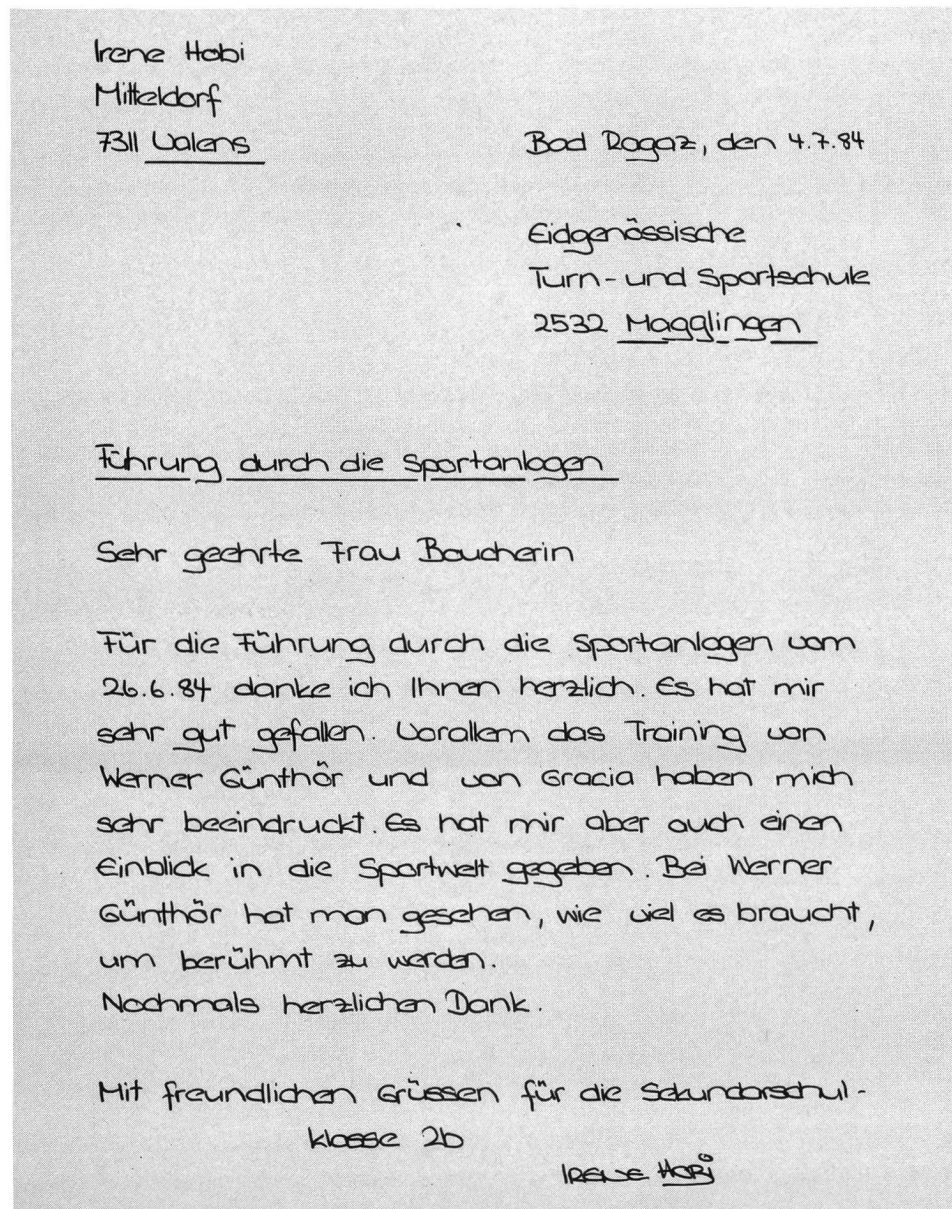 Irene Hobi
Mitteldorf
7311 Valens
Bad Ragaz, den 4.7.84
Eidgenössische
Turn- und Sportschule
2532 Magglingen
Führung durch die Sportanlagen
Sehr geehrte Frau Boucherin
Für die Führung durch die Sportanlagen vom
26.6.84 danke ich Ihnen herzlich. Es hat mir
sehr gut gefallen. Vorallem das Training von
Werner Günthör und von Gracia haben mich
sehr beeindruckt. Es hat mir aber auch einen
Einblick in die Sportwelt gegeben. Bei Werner
Günthör hat man gesehen, wie viel es braucht,
um berühmt zu werden.
Nochmals herzlichen Dank.
Mit freundlichen Grüssen für die Sekundarschul-
klasse 2b
Irene Hobi